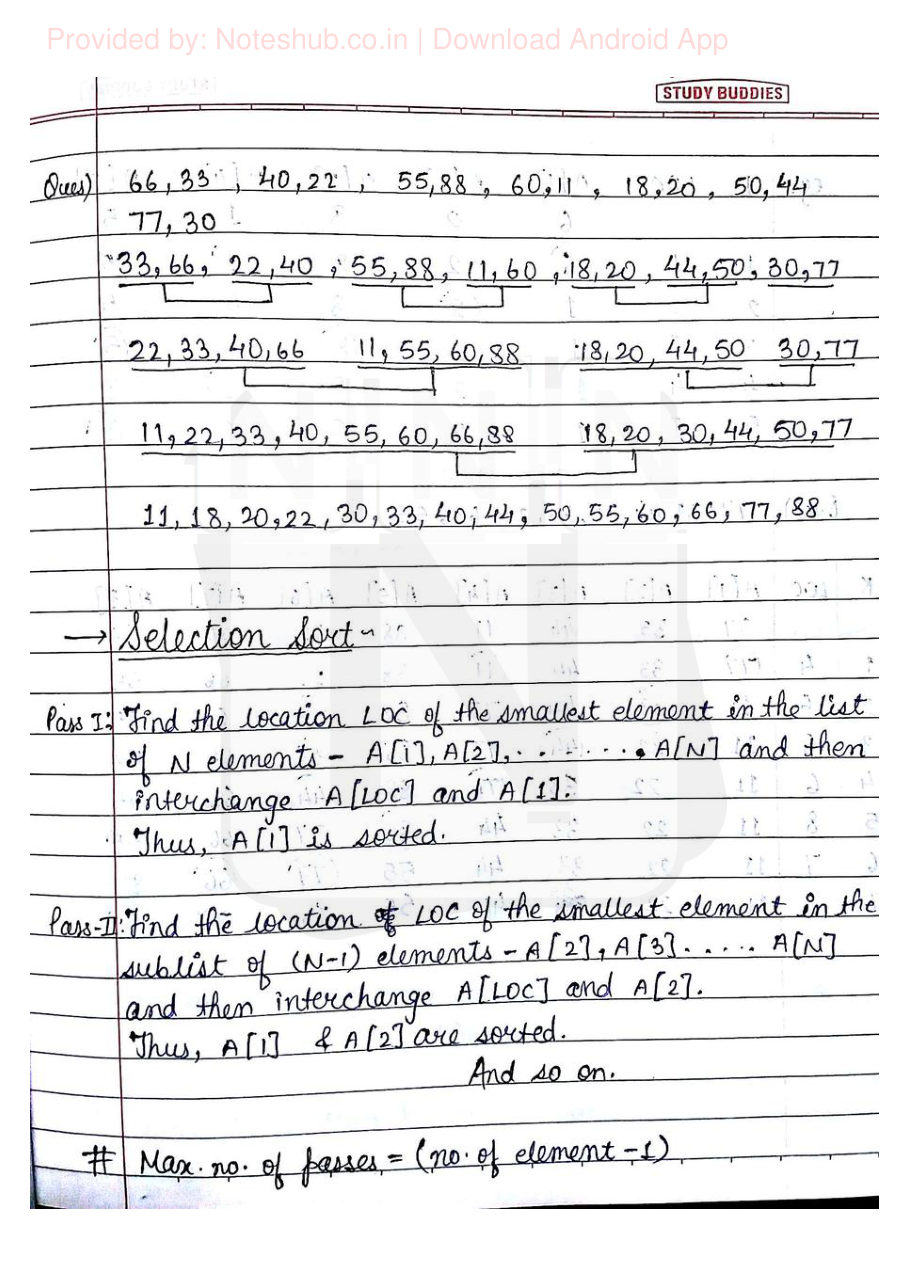 Provided by: Noteshub.co.in | Download Android App
STUDY BUDDIES
Ques) 66, 33, 40, 22, 55, 88, 60, 11, 18, 20, 50, 44
77, 30
33, 66, 22, 40, 55, 88, 11, 60, 18, 20, 44, 50, 30, 77
22, 33, 40, 66 11, 55, 60, 88 18, 20, 44, 50 30, 77
11, 22, 33, 40, 55, 60, 66, 88 18, 20, 30, 44, 50, 77
11, 18, 20, 22, 30, 33, 40, 44, 50, 55, 60, 66, 77, 88.
→ Selection Sort -
Pass I: Find the location LOC of the smallest element in the list
of N elements - A[1], A[2], ........, A[N] and then
interchange A[LOC] and A[1].
Thus, A[1] is sorted.
Pass-II: Find the location of LOC of the smallest element in the
sublist of (N-1) elements - A[2], A[3]...... A[N]
and then interchange A[LOC] and A[2].
Thus, A[1] & A[2] are sorted.
And so on.
# Max. no. of passes = (no. of element - 1)